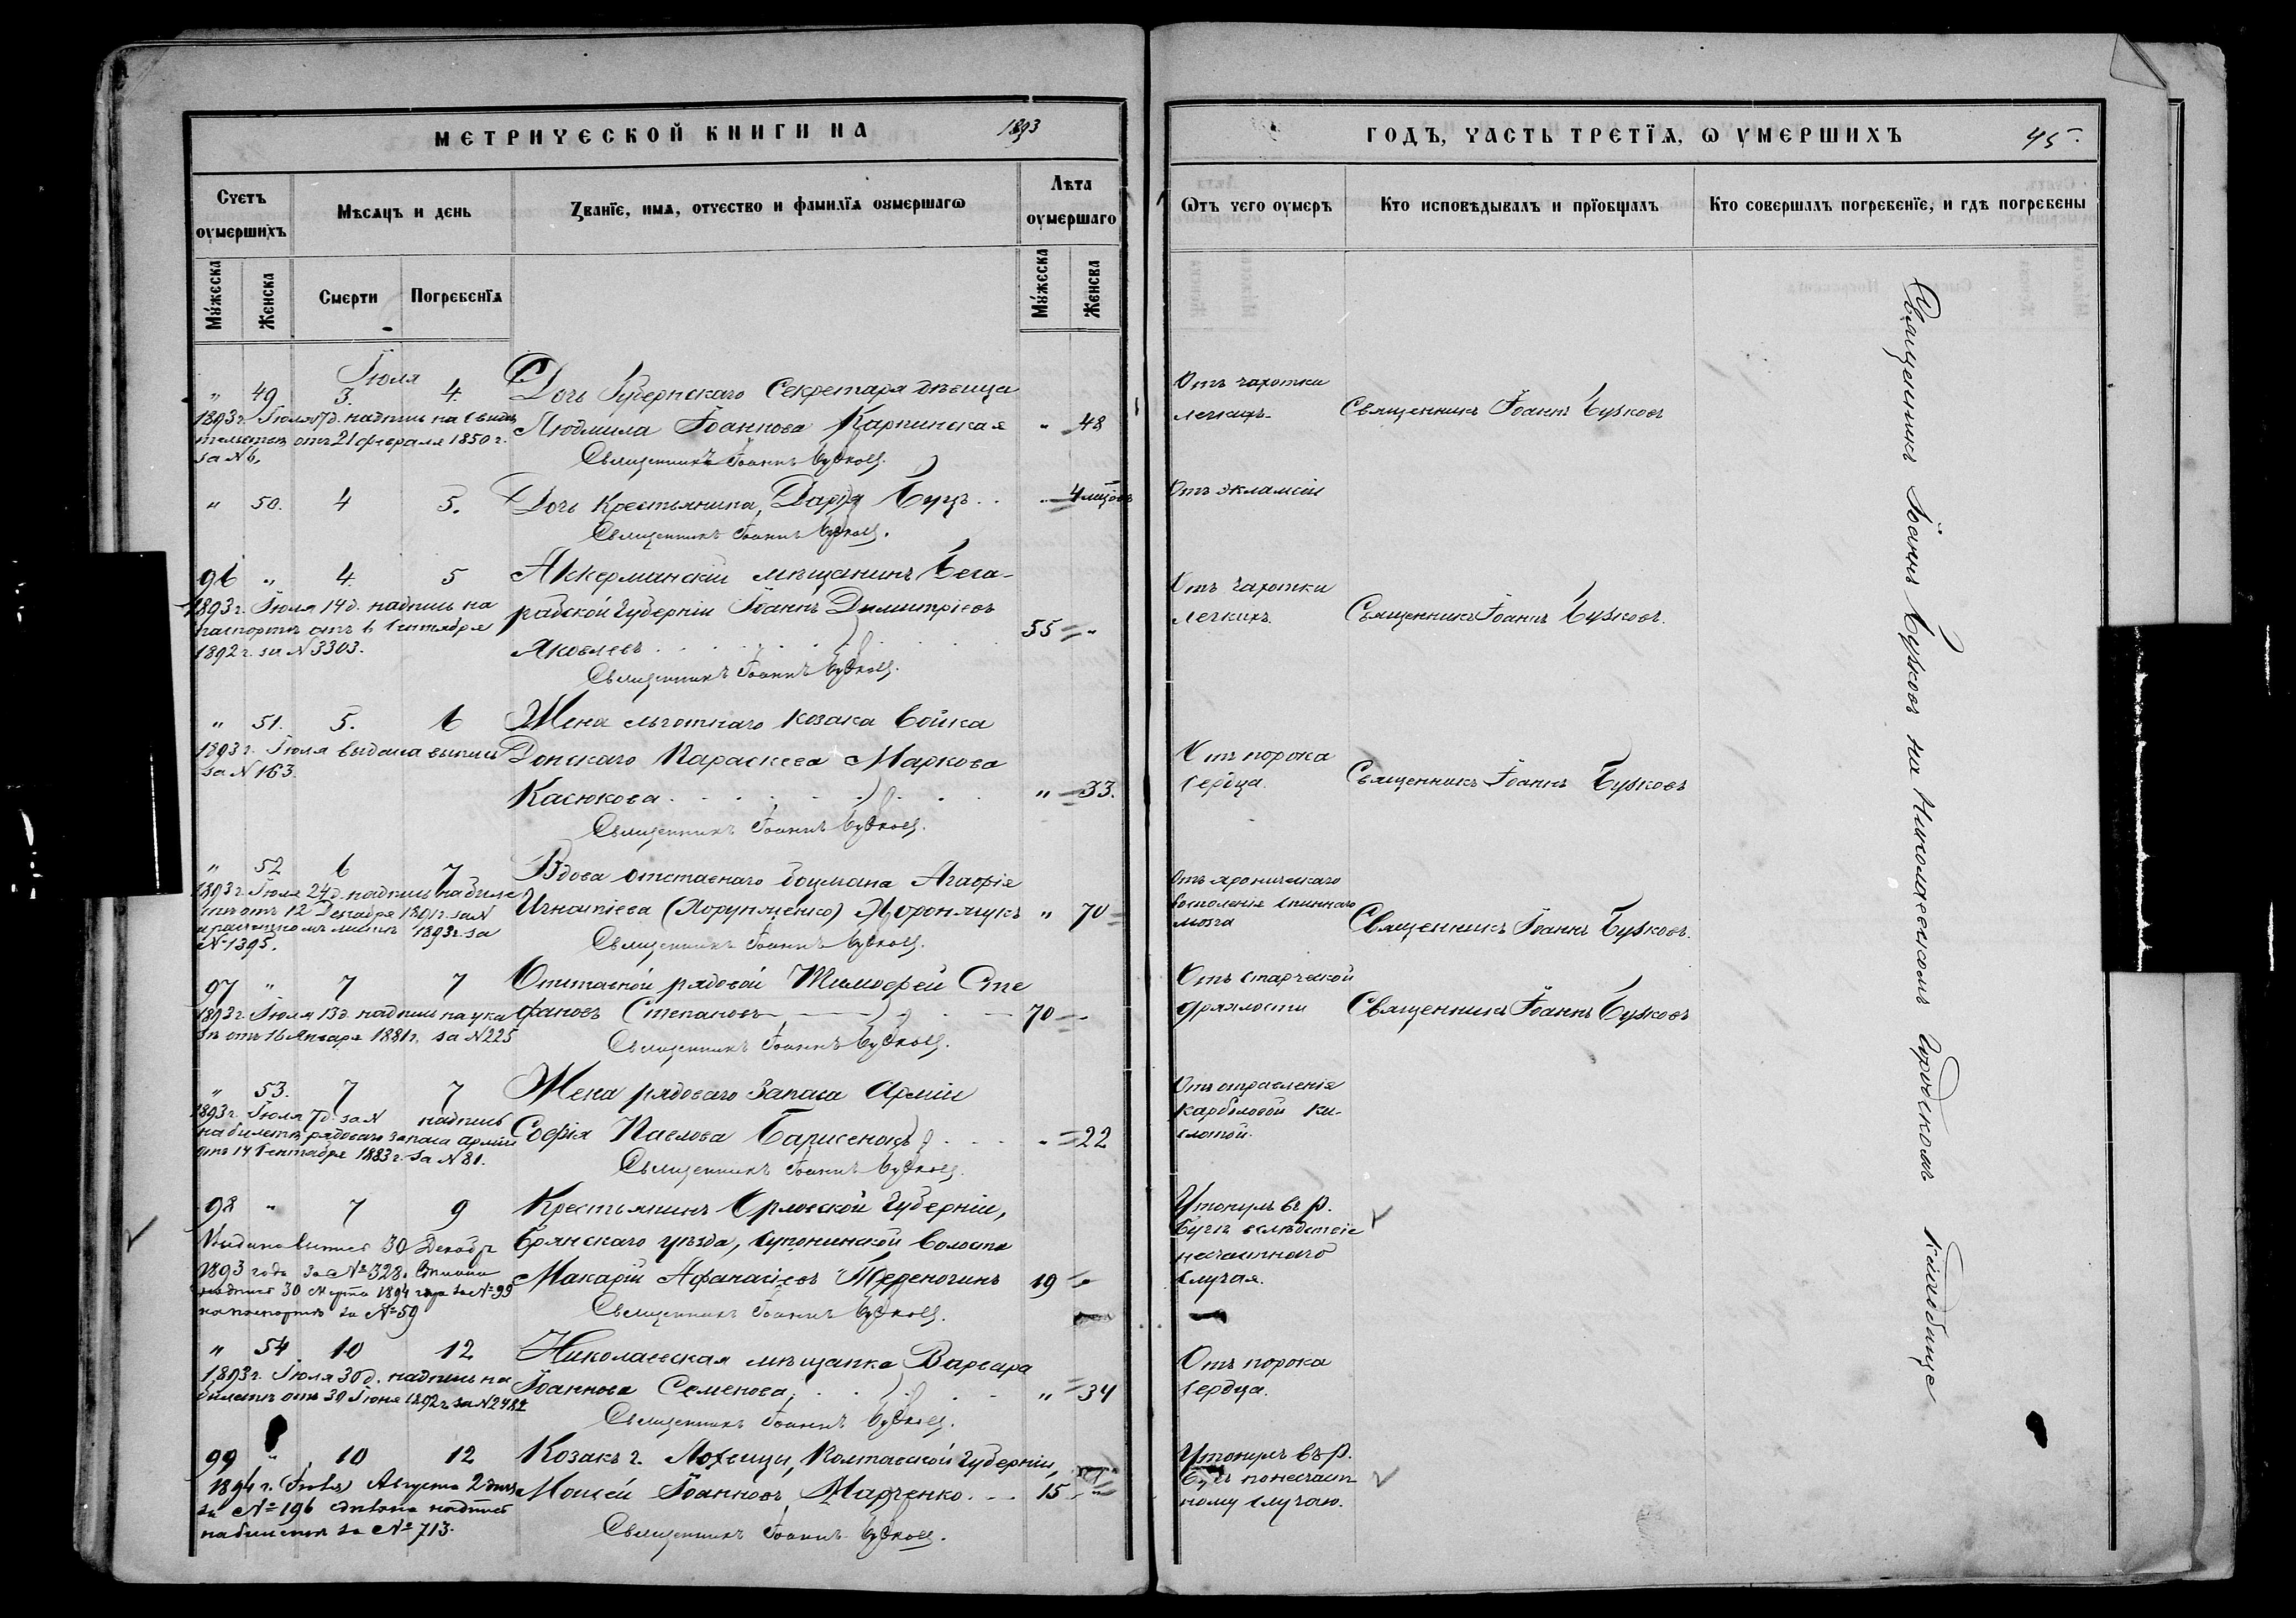 МЕТРИЧЕСКОЙ КНИГИ НА 1893
Счетъ оумершихъ
Мѣсяцъ и день
Званїе, имя, отчество и фамилїя оумершагѡ
Лѣта оумершаго
Мꙋжеска
Женска
Смерти
Погребенїя
Мꙋжеска
Женска
Іюля
" 49 3. 4 Дочь Губернскаго Секретаря дѣвица
1893 г. Іюля 7 д. надпись на свидѣ
тельствѣ отъ 21 февраля 1850 г.
за N 6.
Людмила Іоаннова Карпинская " 48
Священникъ Іоаннъ Бузковъ.
" 50. 4 5. Дочь крестьянина, Дарія Буцъ . . 4 мцовъ
Священникъ Іоаннъ Бузковъ.
96 " 4 5 Аккерманскій мѣщанинъ Беса-
1893 г. Іюля 14 д. надпись на
паспортѣ отъ 6 Сентября
1892 г. за N 3303.
рабской Губерніи Іоаннъ Димитріевъ
Яковлевъ . . . 55 "
Священникъ Іоаннъ Бузковъ.
" 51. 5. 6 Жена льготнаго козака Войска
1893 г. Іюля выдана выпись
за N 163.
Донскаго Параскева Маркова
Касюкова . . . " 33.
Священникъ Іоаннъ Бузковъ.
" 52 6 7 Вдова отставнаго боцмана Агафія
1893 г. Іюля 24 д. надпись на биле
тѣ отъ 12 Декабря 1891 г. за N
и расчетномъ листѣ 1893 г. за
N 1395.
Игнатіева (Хорунженко) Хоронжукъ " 70
Священникъ Іоаннъ Бузковъ.
97 " 7 7 Отставной рядовой Тимофей Сте
1893 г. Іюля 13 д. надпись на ука
зѣ отъ 16 Января 1881 г. за N 225
фановъ Степановъ 70 "
Священникъ Іоаннъ Бузковъ.
" 53. 7 7 Жена рядоваго запаса Арміи
1893 г. Іюля 7 д. за N надпись
на билетѣ рядоваго запаса арміи
отъ 14 Сентября 1883 г. за N 81.
Софія Павлова Барисенокъ . . . " 22
Священникъ Іоаннъ Бузковъ.
98 " 7 9 Крестьянинъ Орловской Губерніи,
Выдана выпись 30 Декабр
1893 года за № 328.
надпись 30 Марта 1894 года за № 99
на паспортѣ за № 59
Брянскаго уѣзда, Супонинской волости
Макарій Афанасіевъ Тереногинъ 19 "
Священникъ Іоаннъ Бузковъ.
" 54 10 12 Николаевская мѣщанка Варвара
1893 г. Іюля 30 д. надпись на
билетѣ отъ 30 Іюня 1892 г. за N 2484
Іоаннова Семенова . . . " 34
Священникъ Іоаннъ Бузковъ.
99 " 10 12 Козакъ г. Лохвицы, Полтавской Губерніи,
1894 г. (Іюля) Августа 2 дня
за № 196 сдѣлана надпись
на билетѣ за № 713.
Моисей Іоанновъ Марченко . . 15 "
Священникъ Іоаннъ Бузковъ.
ГОДЪ, ЧАСТЬ ТРЕТЇЯ, Ѡ УМЕРШИХЪ 45.
Ѡтъ чего оумеръ
Кто исповѣдывалъ и прїобщалъ
Кто совершалъ погребенїе, и гдѣ погребены
Отъ чахотки
легкихъ.
Священникъ Іоаннъ Бузковъ
Отъ экламсіи
Отъ чахотки
легкихъ.
Священникъ Іоаннъ Бузковъ.
Отъ порока
сердца.
Священникъ Іоаннъ Бузковъ
Отъ хроническаго
воспаленія спиннаго
мозга
Священникъ Іоаннъ Бузковъ.
Отъ старческой
дряхлости
Священникъ Іоаннъ Бузковъ
Отъ отравленія
карболовой ки-
слотой.
Утонулъ въ р.
Бугѣ вслѣдствіе
несчастнаго
случая.
Отъ порока
сердца.
Утонулъ въ р.
Бугѣ по несчаст
ному случаю.
Священникъ Іоаннъ Бузковъ на Николаевскомъ Городскомъ кладбищѣ